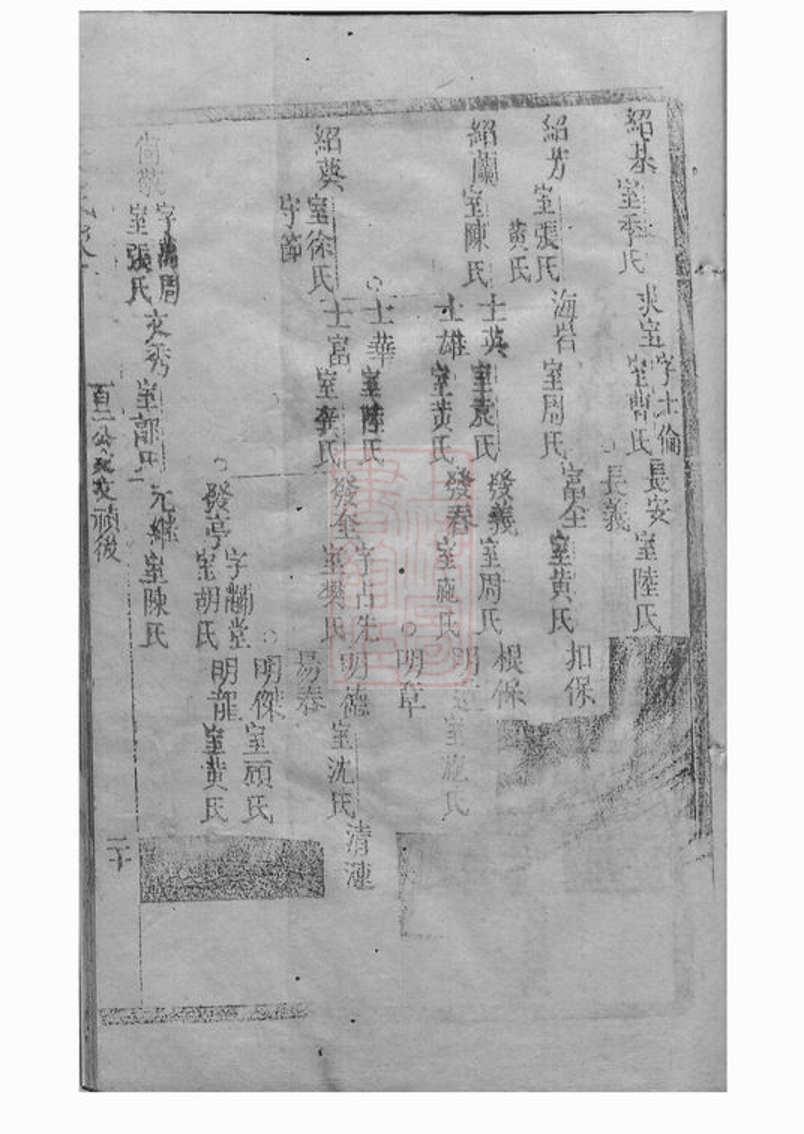 紹基 室季氏
求宝 字士倫 室曹氏
長安 室陸氏
長義
紹芳 室張氏 黄氏
海岩 室周氏
富全 室黄氏
扣保
紹蘭 室陳氏
士英 室袁氏
發義 室周氏
根保
士雄 室黄氏
發春 室施氏
室施氏
明草
紹英 室徐氏 守節
士華 室陸氏
士富 室龔氏
發全 字占先 室樊氏
明德 室沈氏
清漣
易春
發亭 室胡氏
明傑 室顧氏
明龍 室黄氏
尙敬 字萬周 室張氏
文秀
元繼 室陳氏
二十